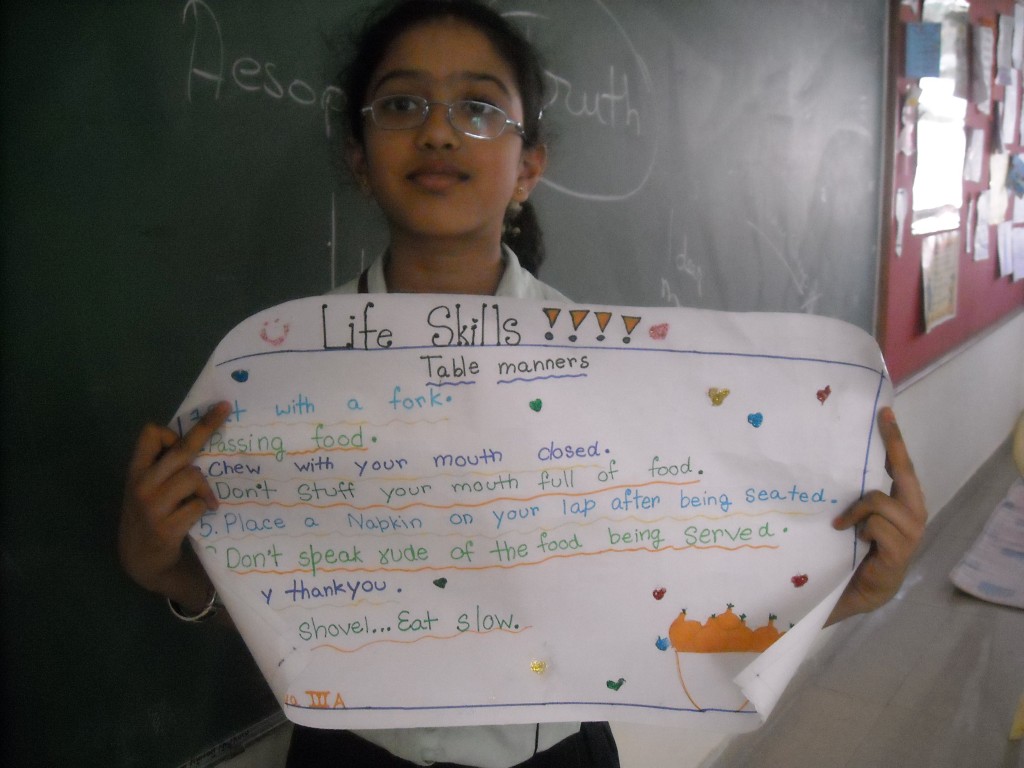 Aesop Truth
Life Skills !!!!
Table manners
with a fork.
Passing food.
Chew with your mouth closed.
Don't stuff your mouth full of food.
5. Place a Napkin on your lap after being seated.
Don't speak rude of the food being served.
y thankyou.
Shovel... Eat slow.
III A